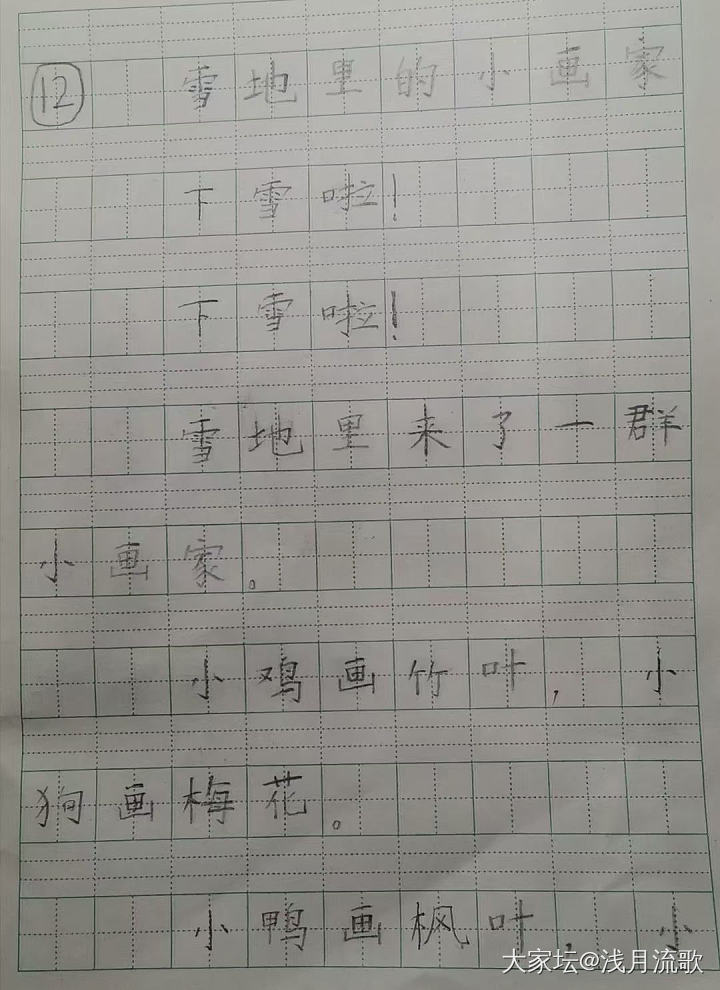 12 雪地里的小画家
下雪啦!
下雪啦!
雪地里来了一群
小画家。
小鸡画竹叶,小
狗画梅花。
小鸭画枫叶,小
大家坛@浅月流歌